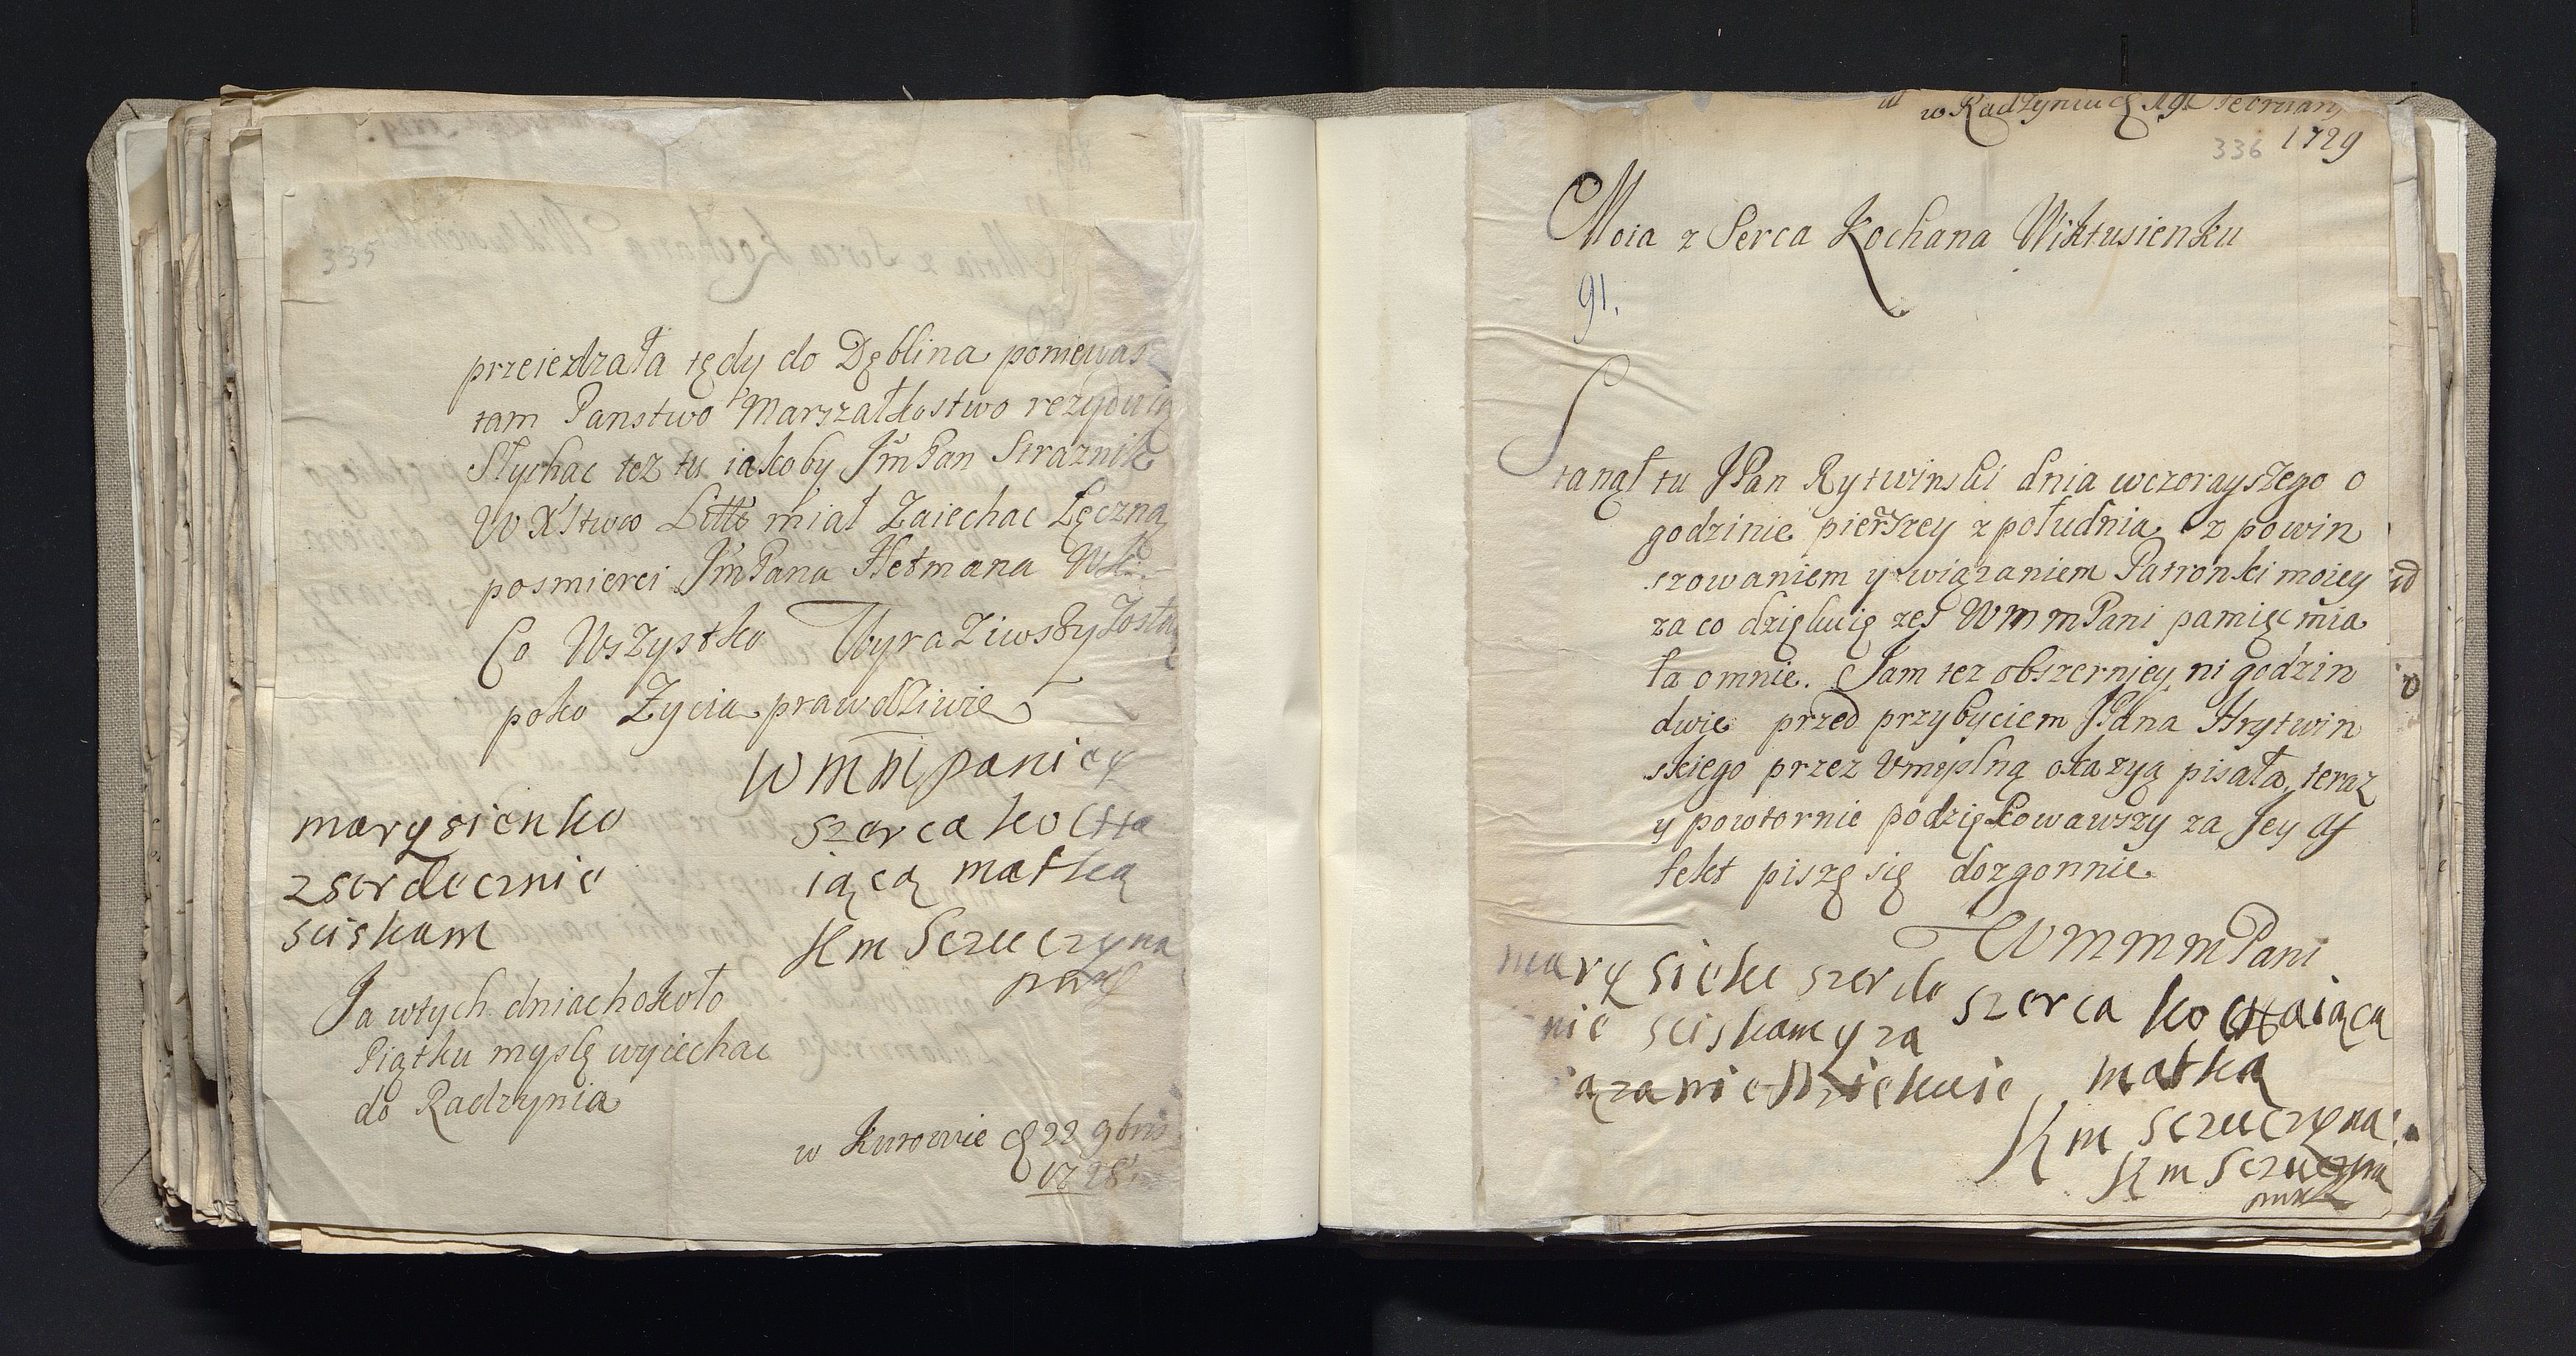 335
przeiezdzała tędy do Dęblina poniewasz
tam Panstwo Marszałkostwo rezyduią
Słychac tez tu iakoby Jm̃ Pan Straznik
W Xstwa Litt̃o miał Zaiechac Łęczną
posmierci Jm̃Pana Hetmana Wk:
Co Wszystko Wyraziwszy Zosta
poko Zycia prawdziwie
W m m̃ paniey
szerca kocha
iącą matką
K m Sczuczyna
mpp
marysienko
zserdecznie
sciskam
Ja wtych dniach około
Piątku myslę wyiechac
do Radzynia
w Kurowie 22 9bris
1728
w Radzyniu
1729
336
Moia z Serca Kochana Wiktusienku
91.
Stanął tu JPan Rytwinski dnia wczorayszego o
godzinie pierszey z południa, z powin
szowaniem y wiązaniem Patronki moiey
za co dzięknię zes WmmPani pamięc mia
ła omnie. Jam tez obszerniey ni godzin
dwie przed przybyciem JPana Hrytwin
skiego przez Umyslną okazyą pisała, teraz
y powtornie podziękowawszy za Jey af
fekt piszę się dozgonnie.
WmmmPani
marysieku szerde
nie sciskam y za
ązanie dziekuie
szerca kochaiąca
matka
K m sczuczyna
K m Sczuczyna
mpp